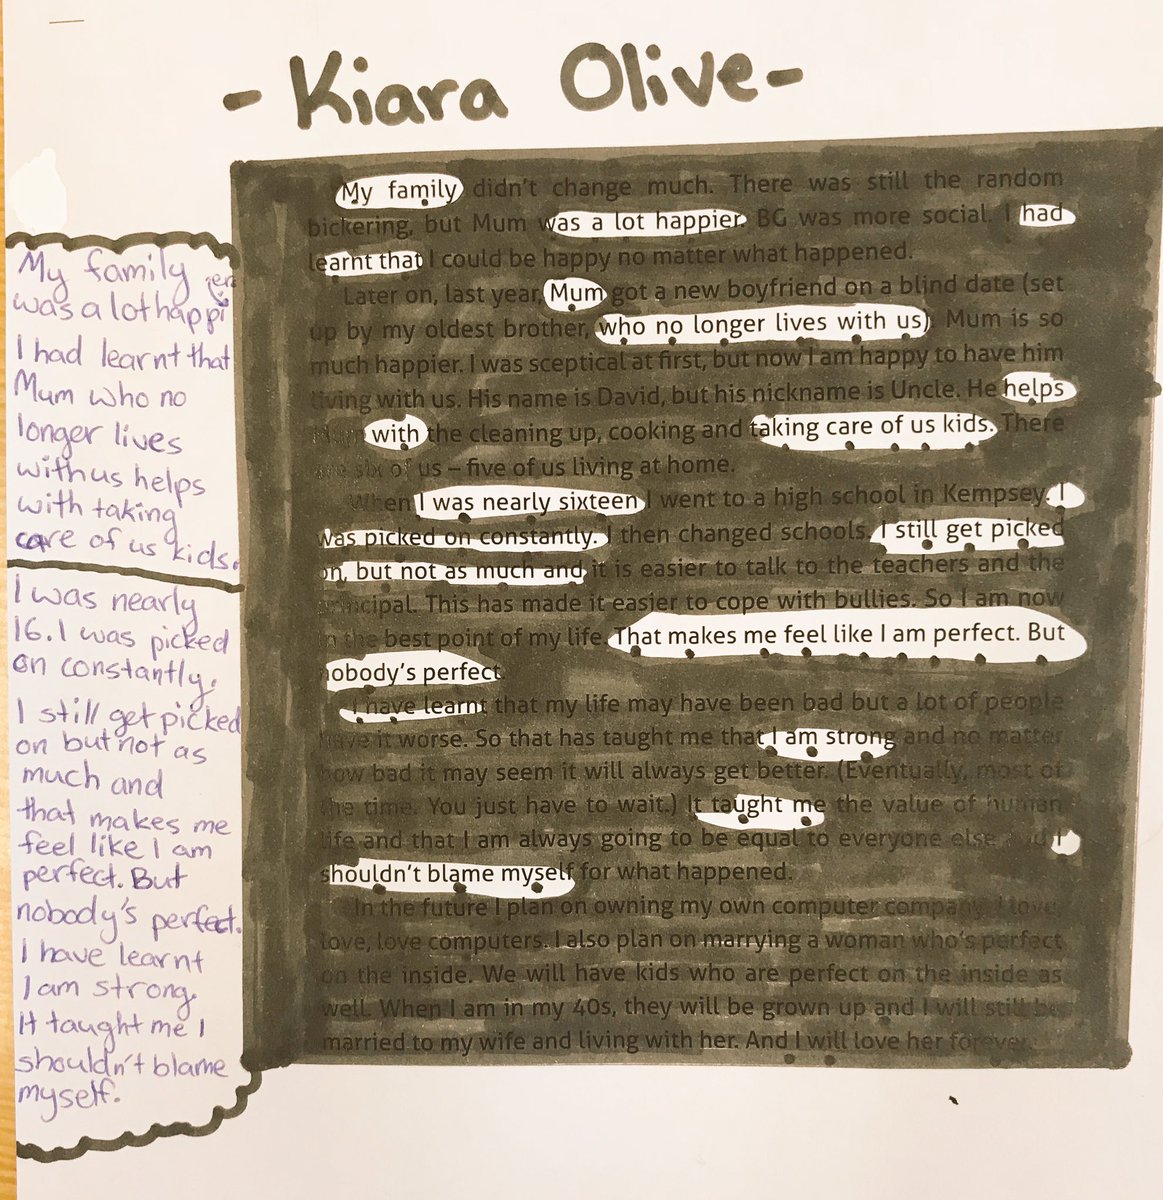 - Kiara Olive -
My family
was a lot happi er
I had learnt that
Mum who no
longer lives
with us helps
with taking
care of us kids.
I was nearly
16. I was picked
on constantly.
I still get picked
on but not as
much and
that makes me
feel like I am
perfect. But
nobody's perfect.
I have learnt
I am strong.
It taught me I
shouldn't blame
myself.
My family didn't change much. There was still the random
bickering, but Mum was a lot happier. BG was more social. I had
learnt that I could be happy no matter what happened.
Later on, last year, Mum got a new boyfriend on a blind date (set
up by my oldest brother, who no longer lives with us). Mum is so
much happier. I was sceptical at first, but now I am happy to have him
living with us. His name is David, but his nickname is Uncle. He helps
Mum with the cleaning up, cooking and taking care of us kids. There
are six of us – five of us living at home.
When I was nearly sixteen I went to a high school in Kempsey. I
was picked on constantly. I then changed schools. I still get picked
on, but not as much and it is easier to talk to the teachers and the
principal. This has made it easier to cope with bullies. So I am now
in the best point of my life. That makes me feel like I am perfect. But
nobody's perfect.
I have learnt that my life may have been bad but a lot of people
have it worse. So that has taught me that I am strong and no matter
how bad it may seem it will always get better. (Eventually, most of
the time. You just have to wait.) It taught me the value of human
life and that I am always going to be equal to everyone else and I
shouldn't blame myself for what happened.
In the future I plan on owning my own computer company. I love,
love, love computers. I also plan on marrying a woman who's perfect
on the inside. We will have kids who are perfect on the inside as
well. When I am in my 40s, they will be grown up and I will still be
married to my wife and living with her. And I will love her forever.